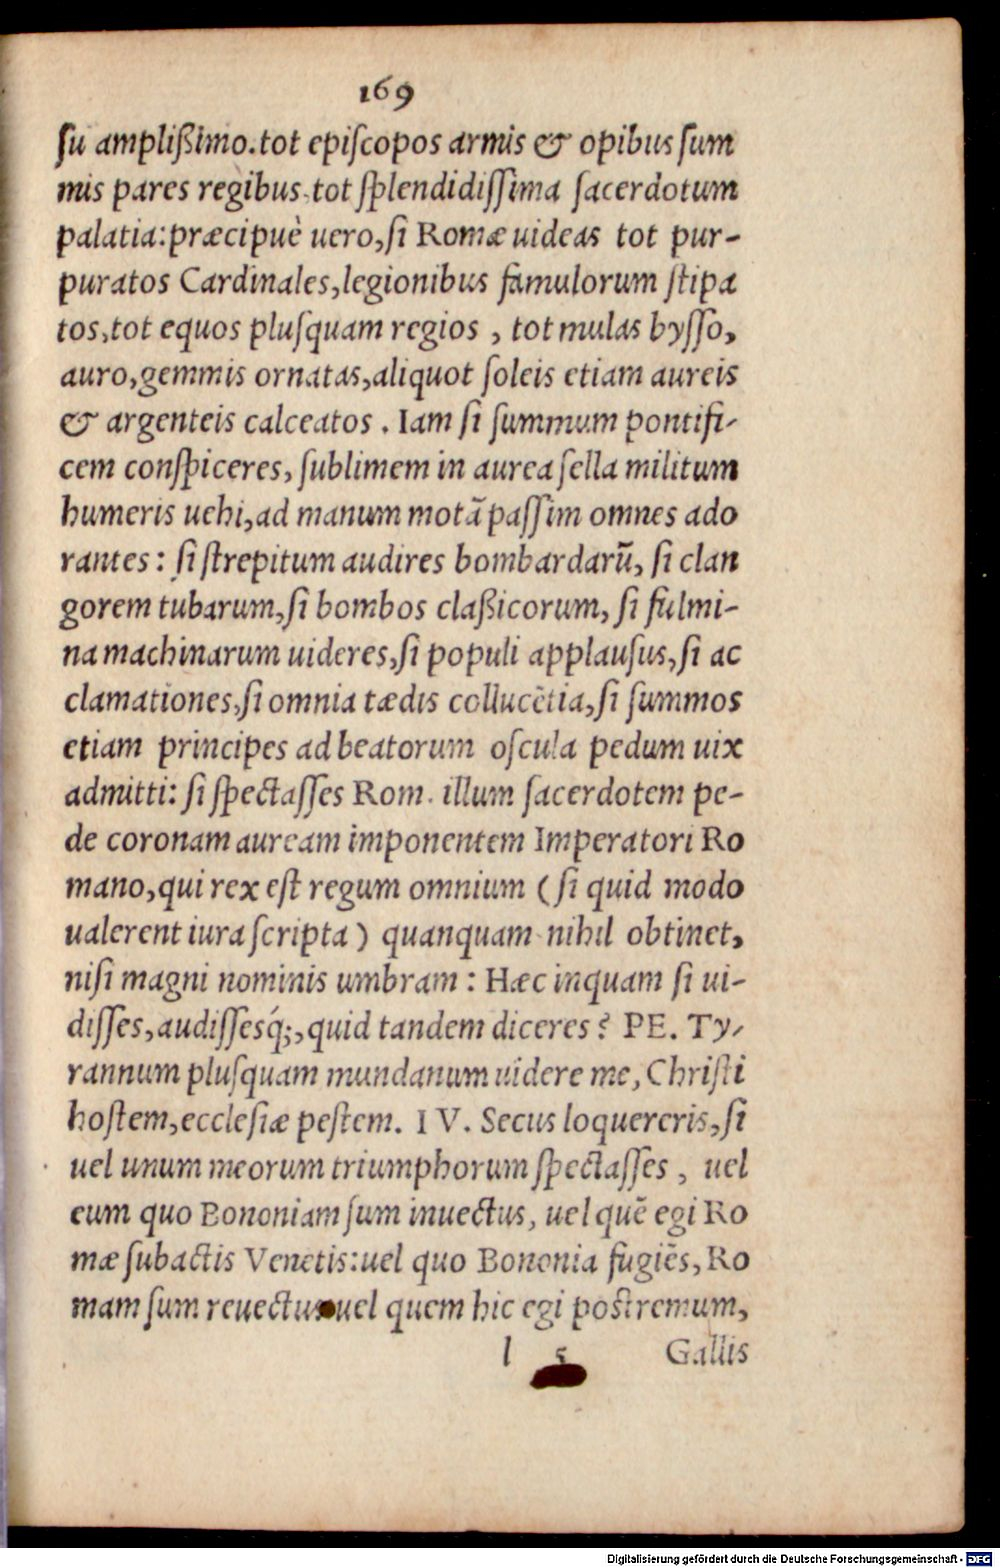 169
ſu amplißimo.tot epiſcopos armis & opibus ſum
mis pares regibus.tot ſplendidiſſima ſacerdotum
palatia:præcipuè uero,ſi Romæ uideas tot pur-
puratos Cardinales,legionibus famulorum ſtipa
tos,tot equos pluſquam regios , tot mulas byſſo,
auro,gemmis ornatas,aliquot ſoleis etiam aureis
& argenteis calceatos . Iam ſi ſummum pontifi-
cem conſpiceres, ſublimem in aurea ſella militum
humeris uehi,ad manum motã paſſim omnes ado
rantes : ſi ſtrepitum audires bombardarũ, ſi clan
gorem tubarum,ſi bombos claßicorum, ſi fulmi-
na machinarum uideres,ſi populi applauſus,ſi ac
clamationes,ſi omnia tædis collucẽtia,ſi ſummos
etiam principes ad beatorum oſcula pedum uix
admitti: ſi ſpectaſſes Rom. illum ſacerdotem pe-
de coronam auream imponentem Imperatori Ro
mano,qui rex eſt regum omnium (ſi quid modo
ualerent iura ſcripta) quanquam nihil obtinet,
niſi magni nominis umbram : Hæc inquam ſi ui-
diſſes,audiſſesq́;,quid tandem diceres? PE. Ty-
rannum pluſquam mundanum uidere me, Chriſti
hoſtem,eccleſiæ peſtem. IV. Secus loquereris,ſi
uel unum meorum triumphorum ſpectaſſes , uel
eum quo Bononiam ſum inuectus, uel quẽ egi Ro
mæ ſubactis Venetis:uel quo Bononia fugiẽs, Ro
mam ſum reuectus uel quem hic egi poſtremum,
l 5 Gallis
Digitalisierung gefördert durch die Deutsche Forschungsgemeinschaft - DFG